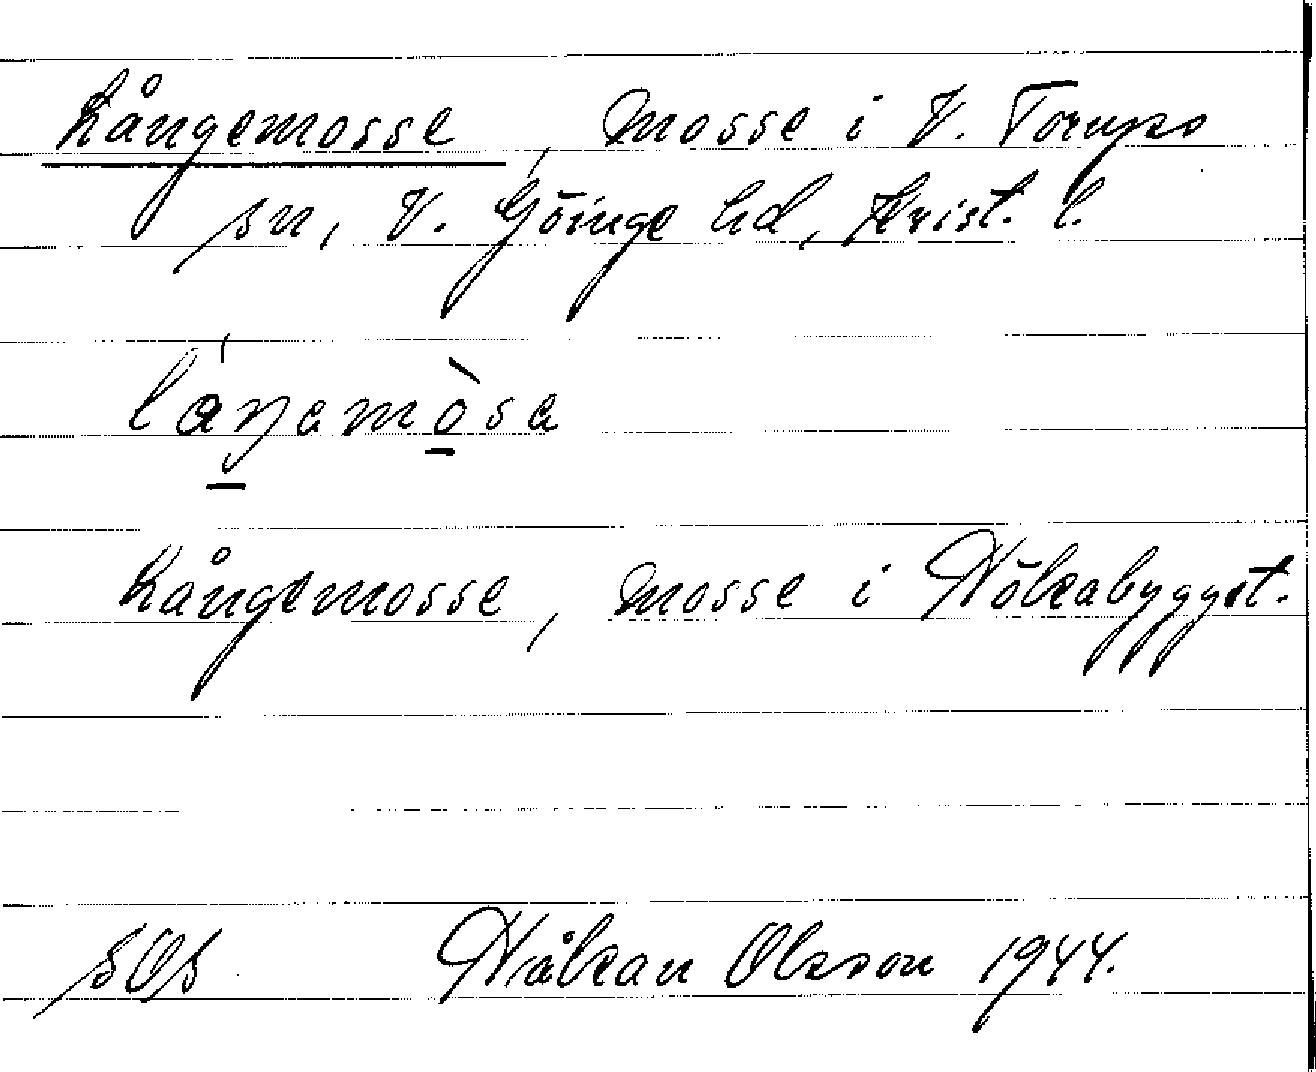 Långemosse, mosse i V. Torups
sn, V. Göinge hd, Krist. l.
láŋemòsa
Långemosse, mosse i Hökabyggst.
SOs Håkan Olsson 1944.